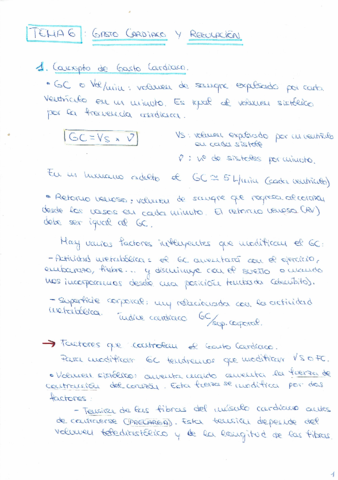 TEMA 6: GASTO CARDIACO Y REGULACIÓN
1. Concepto de Gasto Cardiaco.
• GC o Vol/min: volumen de sangre expulsado por cada
ventrículo en un minuto. Es igual al volumen sistólico
por la frecuencia cardiaca.
GC = Vs x V̇
Vs: volumen expulsado por un ventrículo
en cada sístole
V̇: nº de sístoles por minuto.
En un humano adulto el GC ≃ 5 L/min (cada ventrículo)
• Retorno venoso: volumen de sangre que regresa al corazón
desde los vasos en cada minuto. El retorno venoso (RV)
debe ser igual al GC.
Hay varios factores influyentes que modifican el GC:
- Actividad metabólica: el GC aumentará con el ejercicio,
embarazo, fiebre... y disminuye con el sueño o cuando
nos incorporamos desde una posición tumbada
- Superficie corporal: muy relacionada con la actividad
metabólica. Índice cardiaco GC/sup. corporal.
→ Factores que controlan el Gasto Cardiaco.
Para modificar GC tendremos que modificar VS o FC.
• Volumen sistólico: aumenta cuando aumenta la fuerza de
contracción del corazón. Esta fuerza se modifica por dos
factores:
- Tensión de las fibras del músculo cardiaco antes
de contraerse (PRECARGA). Esta tensión depende del
volumen telediastólico y de la longitud de las fibras.